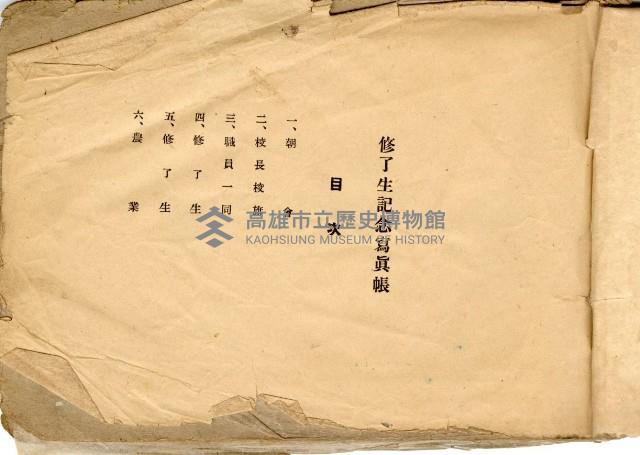 修了生記念寫眞帳
目次
一、朝會
二、校長校旗
三、職員一同
四、修了生
五、修了生
六、農業
高雄市立歷史博物館
KAOHSIUNG MUSEUM OF HISTORY